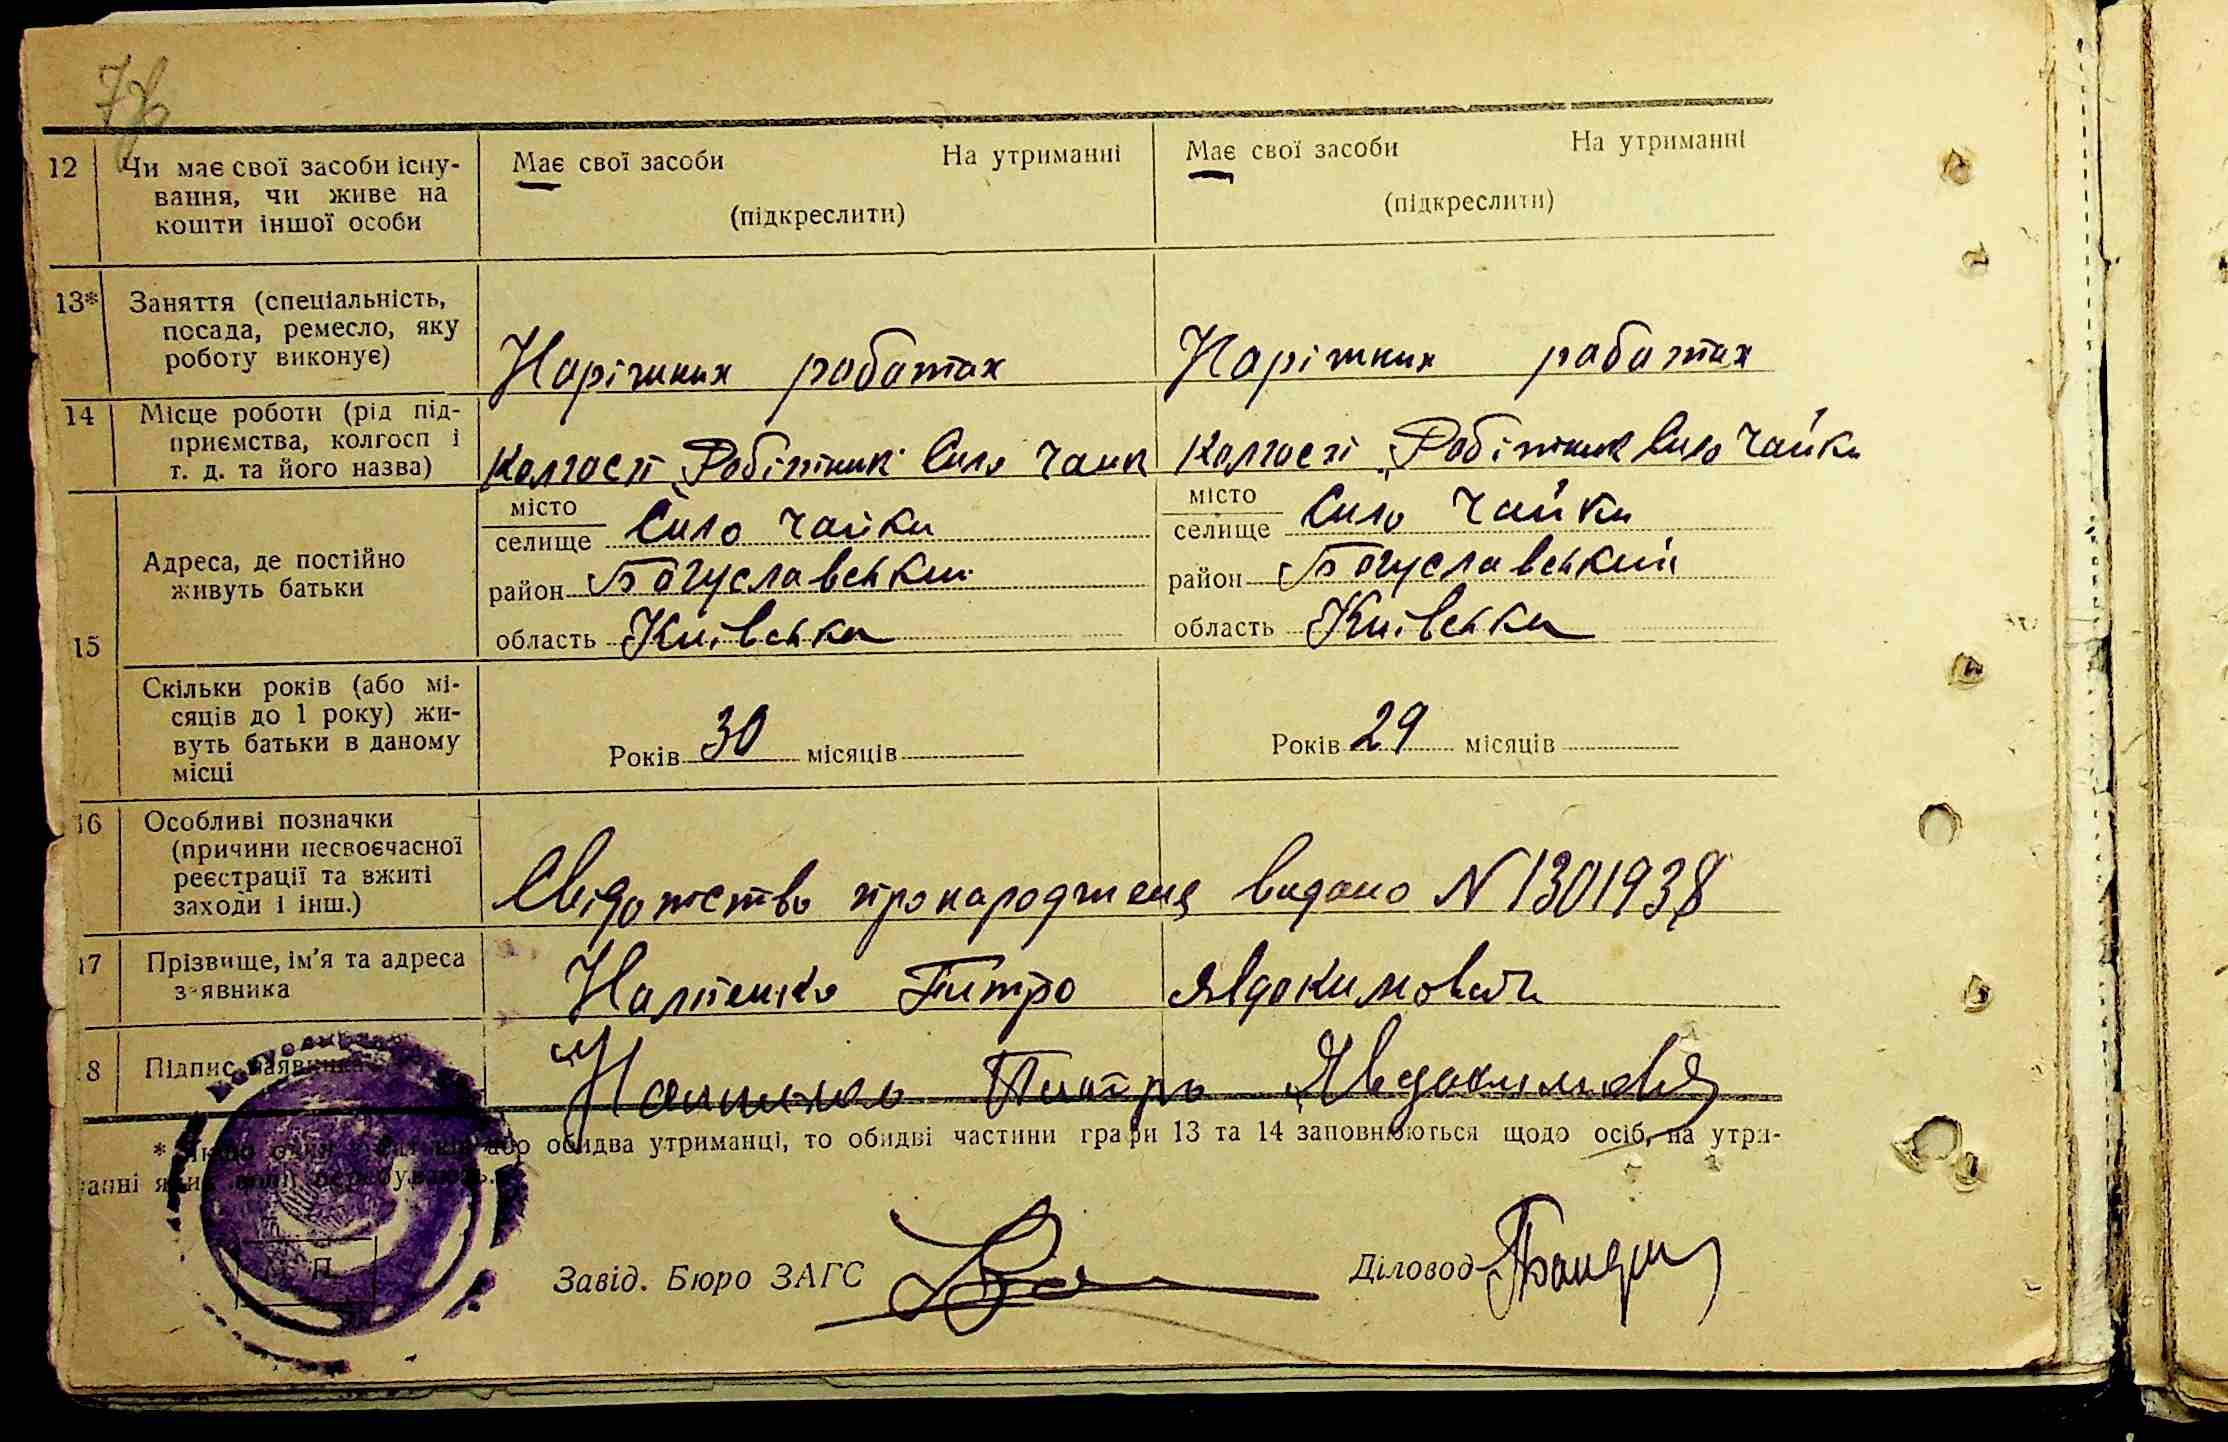 12 Чи має свої засоби існу-
вання, чи живе на
кошти іншої особи
Має свої засоби На утриманні
(підкреслити)
Має свої засоби На утриманні
(підкреслити)
13* Заняття (спеціальність,
посада, ремесло, яку
роботу виконує)
Наріжних работах
Наріжних работах
14 Місце роботи (рід під-
приємства, колгосп і
т. д. та його назва)
Колгосп Робітник Сило Чайк
Колгосп Робітник Сило Чайки
15 Адреса, де постійно
живуть батьки
місто
селище Сило Чайки
район Богуславський
область Київська
місто
селище Сило Чайки
район Богуславський
область Київська
Скільки років (або мі-
сяців до 1 року) жи-
вуть батьки в даному
місці
Років 30 місяців
Років 29 місяців
16 Особливі позначки
(причини несвоєчасної
реєстрації та вжиті
заходи і інш.)
Свідотство про народження видано N 1301938
17 Прізвище, ім'я та адреса
заявника
Питро Явдокимович
8 Підпис заявника
Питро
або обидва утриманці, то обидві частини графи 13 та 14 заповнюються щодо осіб, на утри-
Завід. Бюро ЗАГС Діловод